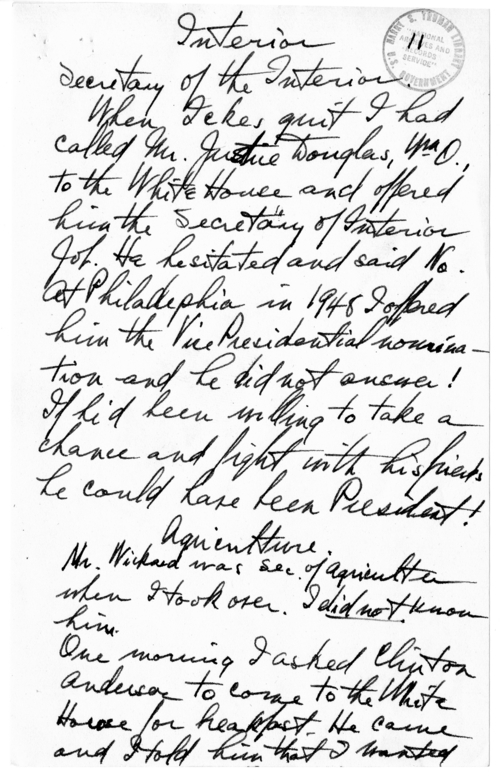 Interior
11
HARRY S. TRUMAN LIBRARY
"NATIONAL
ARCHIVES AND
RECORDS
SERVICE"
U.S. GOVERNMENT
Secretary of the Interior.
When Ickes quit I had
called Mr. Justice Douglas, Wm O.,
to the White House and offered
him the Secretary of Interior
Job. He hesitated and said No.
At Philadephia in 1948 I offered
him the Vice Presidential nomina-
tion and he did not answer!
If he'd been willing to take a
chance and fight with his friends
he could have been President!
Agriculture.
Mr. Wickard was Sec. of agriculture
when I took over. I did not know
him.
One morning I asked Clinton
Anderson to come to the White
House for breakfast. He came
and I told him that I wanted